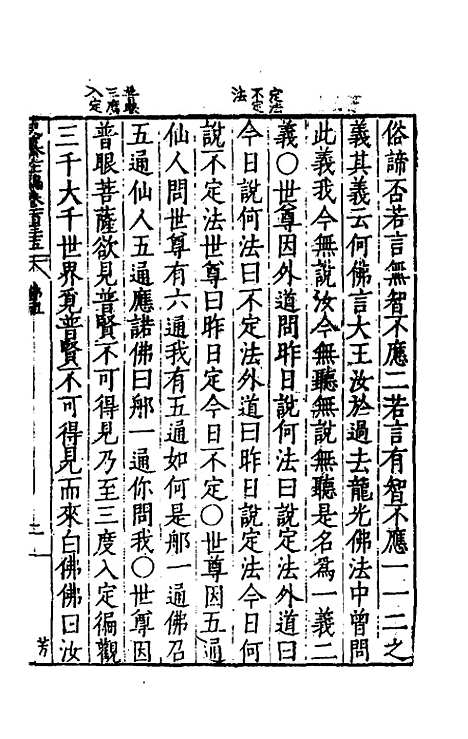 定法
不定
法
普眼
三度
入定
俗諦否若言無智不應二若言有智不應一一二之
義其義云何佛言大王汝於過去龍光佛法中曾問
此義我今無說汝今無聽無說無聽是名爲一義二
義〇世尊因外道問昨日說何法曰說定法外道曰
今日說何法曰不定法外道曰昨日說定法今日何
說不定法世尊曰昨日定今日不定〇世尊因五通
仙人問世尊有六通我有五通如何是那一通佛召
五通仙人五通應諾佛曰那一通你問我〇世尊因
普眼菩薩欲見普賢不可得見乃至三度入定徧觀
三千大千世界覓普賢不可得見而來白佛佛曰汝
芳